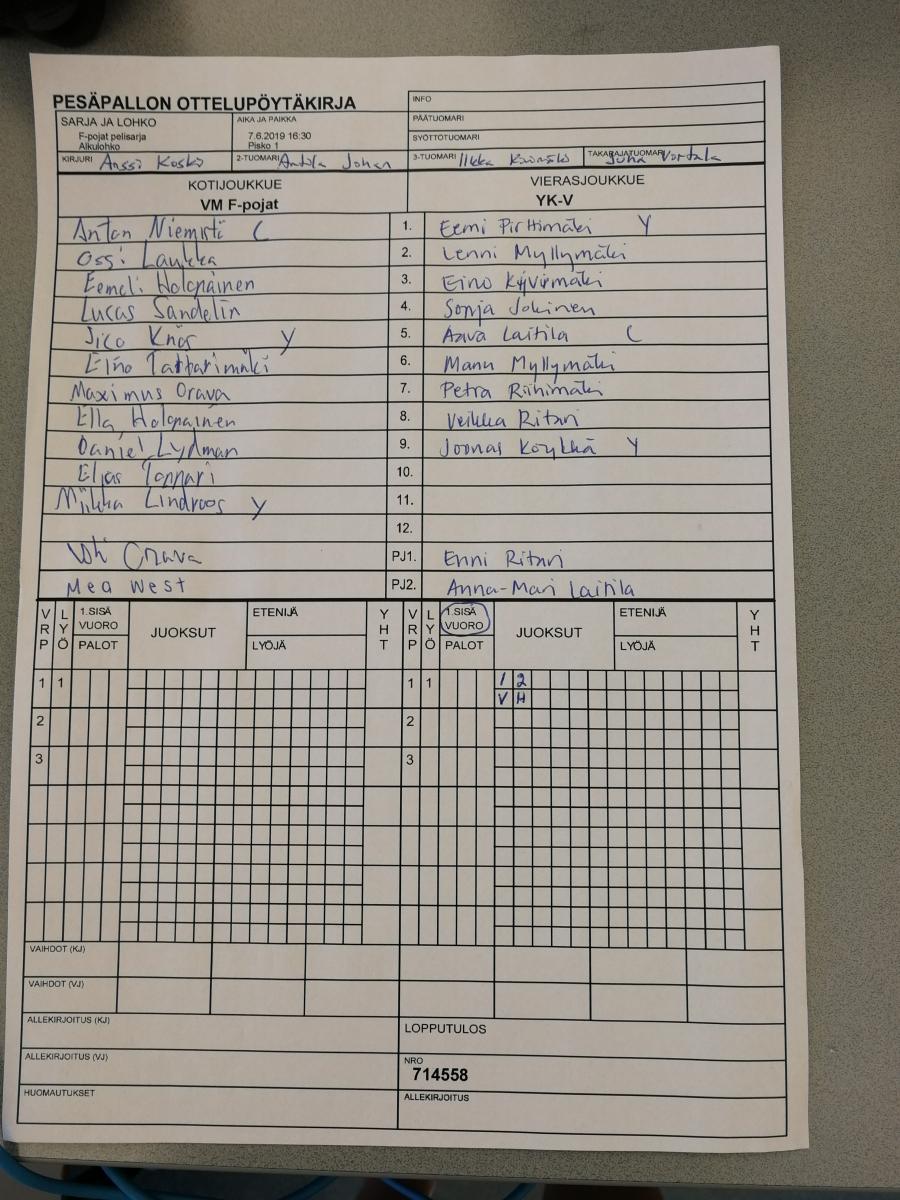 PESÄPALLON OTTELUPÖYTÄKIRJA
INFO
SARJA JA LOHKO
F-pojat pelisarja
Alkulohko
AIKA JA PAIKKA
7.6.2019 16:30
Pisko 1
PÄÄTUOMARI
SYÖTTÖTUOMARI
KIRJURI Anssi Kosko 2-TUOMARI Antila Johan 3-TUOMARI Ilkka TAKARAJATUOMARI Juha Vartala
KOTIJOUKKUE VIERASJOUKKUE
VM F-pojat YK-V
Anton Niemistö C 1. Eemi Pirttimäki Y
Ossi Laukka 2. Lenni Myllymäki
Eemeli Holopainen 3. Eino
Lucas Sandelin 4. Sonja Jokinen
Jico Knår Y 5. Aava Laitila C
Eino Tattarimäki 6. Manu Myllymäki
Maximus Orava 7. Petra Riihimäki
Ella Holopainen 8. Veikka Ritari
Daniel Lydman 9. Joonas Köykkä Y
Elias Toppari 10.
Miikka Lindroos Y 11.
12.
Orava PJ1. Enni Ritari
Mea West PJ2. Anna-Mari Laitila
VRP LYÖ 1.SISÄ VUORO PALOT JUOKSUT ETENIJÄ LYÖJÄ YHT VRP LYÖ 1.SISÄ VUORO PALOT JUOKSUT ETENIJÄ LYÖJÄ YHT
1 1 1 1 1 2
V H
2 2
3 3
VAIHDOT (KJ)
VAIHDOT (VJ)
ALLEKIRJOITUS (KJ) LOPPUTULOS
ALLEKIRJOITUS (VJ) NRO
714558
HUOMAUTUKSET ALLEKIRJOITUS